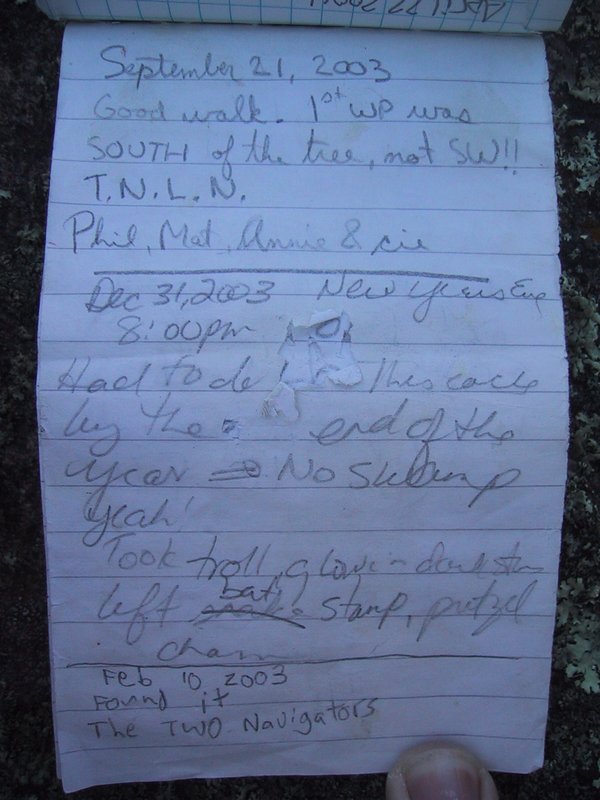 September 21, 2003
Good walk. 1st WP was
SOUTH of the tree, not SW!!
T.N.L.N.
Phil, Mat, Annie & cie
Dec 31, 2003 New Years Eve
8:00pm
Had to do this cache
by the end of the
year ⇒ No Swamp
yeah!
Took troll, glow in dark
left bat stamp, pretzel
charm
Feb 10 2003
Found it
The TWO Navigators